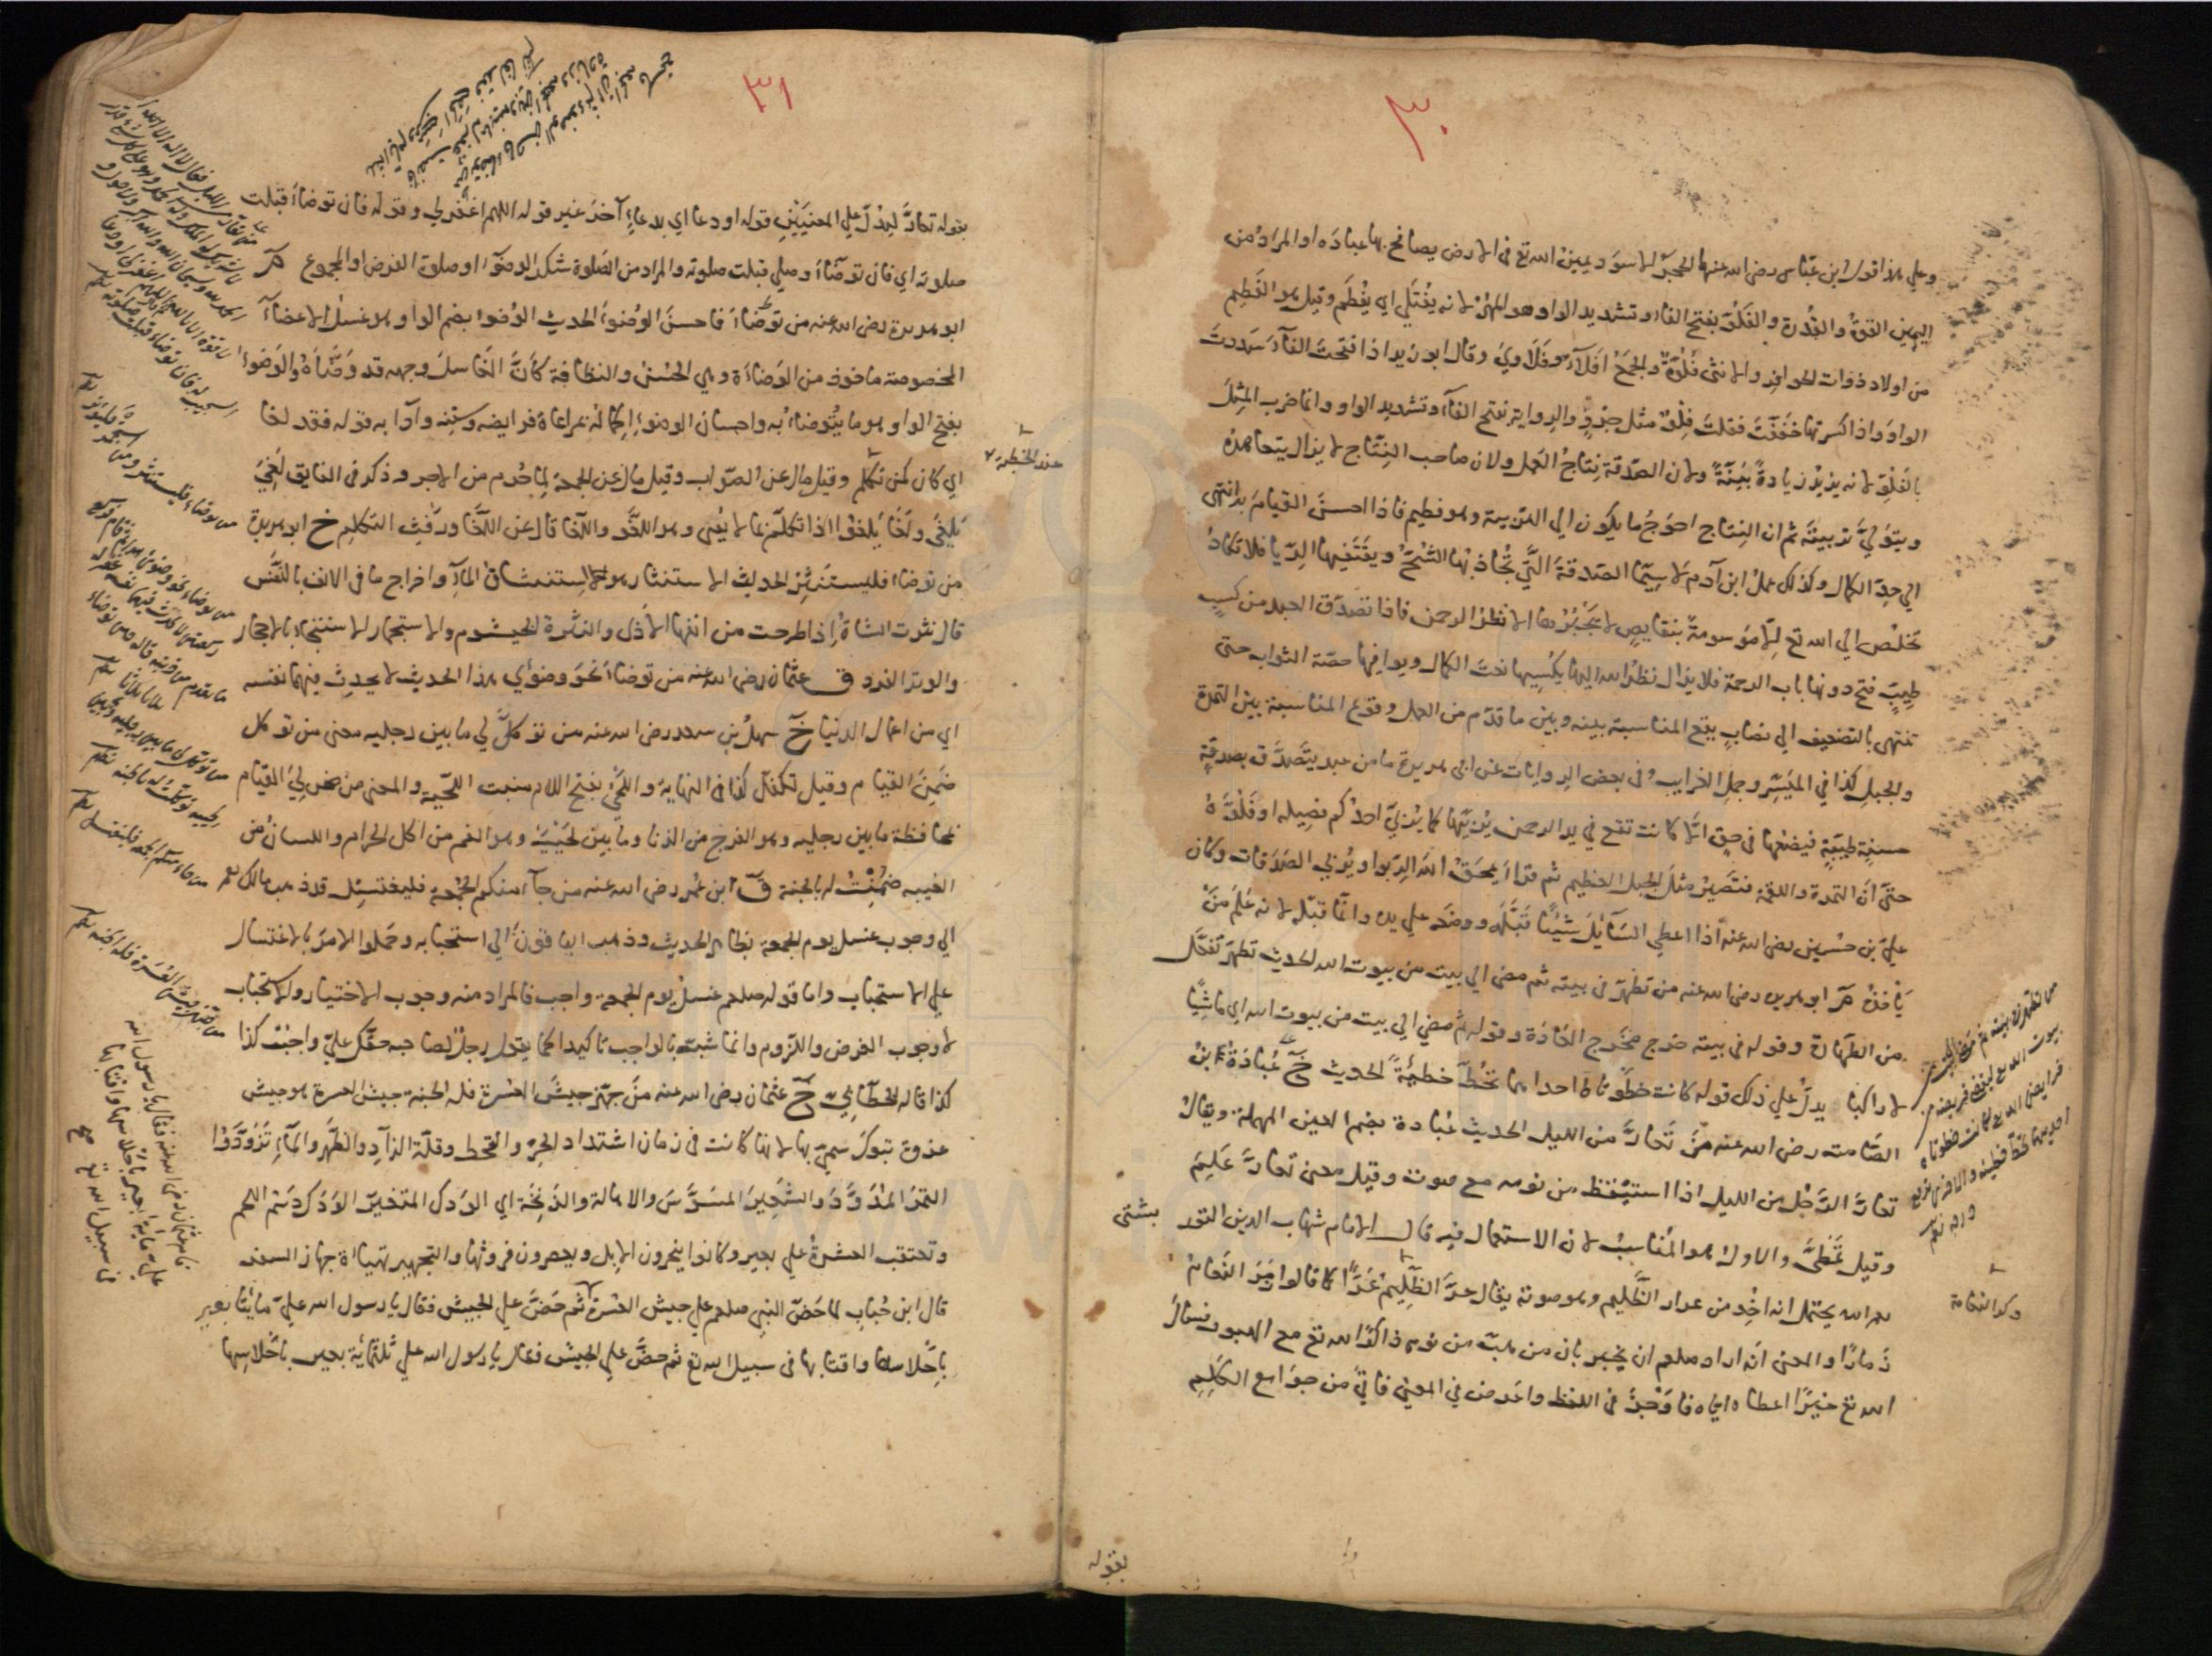 ٣٠
وعلي هذا قول ابن عباس رضي الله عنهما الحجر الاسود يمين الله تع في الارض يصافح بها عباده او المراد من
اليمين القوة والقدرة والفلو بفتح الفاء وتشديد الواو هو المهر لانه يفتلي اي يفطم وقيل هو الفطيم
من اولاد ذوات الحوافر والانثى فلوة والجمع افلاء وفلاوي وقال ابو زيد اذا فتحت الفاء شددت
الواو واذا كسرتها خففت فقلت فلو مثل جرو والرواية بفتح الفاء وتشديد الواو وانما ضرب المثل
بالفلو لانه يزيد زيادة بينة ولان الصدقة نتاج العمل ولان صاحب النتاج لا يزال يتعاهده
ويتولي تربيته ثم ان النتاج احوج ما يكون الي التربية وهو فطيم فاذا احسن القيام به انتهى
الي حد الكمال وكذلك عمل ابن آدم لا سيما الصدقة التي يجاذبها الشح ويقتفيها الريا فلا تكاد
تخلص الي الله تع الا موسومة بنقايص لا يجبرها الا نظر الرحمن فاذا تصدق العبد من كسب
طيب فتح دونها باب الرحمة فلا يزال نظر الله اليها يكسيها نعت الكمال ويوافيها حصة الثواب حتى
تنتهى بالتضعيف الي نصاب يقع المناسبة بينه وبين ما قدم من العمل وقوع المناسبة بين التمرة
والجبل كذا في الميسر وجمل الغرايب وفى بعض الروايات عن ابي هريرة ما من عبد يتصدق بصدقة
حسنة طيبة فيضعها فى حق الا كانت تقع في يد الرحمن يربيها كما يربي احدكم فصيله او فلوه
حتى ان التمرة واللقمة فتصير مثل الجبل العظيم ثم قرأ يمحق الله الربوا ويربي الصدقات وكان
علي بن حسين رضي الله عنه اذا اعطي السائل شيئا قبله ووضعه علي يده وانما قبله لانه علم من
يأخذه م ابو هريرة رضى الله عنه من تطهر في بيته ثم مضى الي بيت من بيوت الله الحديث تطهر تفعل
من الطهارة وقوله فى بيته خرج مخرج العادة وقوله ثم مضي الي بيت من بيوت الله اي ماشيا
لا راكبا يدل علي ذلك قوله كانت خطوتاه احداهما تحط خطيئة الحديث خ عبادة بن
الصامت رضى الله عنه من تعار من الليل الحديث عبادة بضم العين المهملة ويقال
تعار الرجل من الليل اذا استيقظ من نومه مع صوت وقيل معنى تعار علم
وقيل تمطى والاول هو المناسب لان الاستعمال فيه قال الامام شهاب الدين التور
بشتى
رحمه الله يحتمل انه اخذ من عرار الظليم وهو صوته يقال عر الظليم عرا كما قالوا زمر النعام
زمارا والمعنى انه اراد صلعم ان يخبر بان من هب من نومه ذاكرا الله تع مع الهبوب فسال
الله تع خيرا اعطاه اياه فاوجز فى اللفظ واعرض في المعني فاتي من جوامع الكلم
من تطهر فى بيته ثم مضى الى بيت من
بيوت الله تع ليقضى فريضة من
فرايض الله تع كانت خطوتاه
احديهما تحط خطيئة والاخرى ترفع
درجة
وذكر النعامة
بقوله
٣١
بقوله تعار ليدل علي المعنيين قوله او دعا اي بدعاء آخر غير قوله اللهم اغفرلي وقوله فان توضأ قبلت
صلوته اي فان توضأ وصلي قبلت صلوته والمراد من الصلوة شكر الوضوء او صلوة الفرض او المجموع م
ابو هريرة رضي الله عنه من توضأ فاحسن الوضوء الحديث الوضوء بضم الواو هو غسل الاعضاء
المخصوصة ماخوذ من الوضاءة وهي الحسن والنظافة كأن الغاسل وجهه قد وضأه والوضوء
بفتح الواو هو ما يتوضأ به واحسان الوضوء اكماله بمراعاة فرايضه وسننه وآدابه قوله فقد لغا
اي كان كمن تكلم وقيل مال عن الصواب وقيل مال عن الجمعة لما حرم من الاجر وذكر فى الفايق لغي
يلغى ولغا يلغو اذا تكلم بما لا يعنى وهو اللغو واللغا قال عن اللغا ورفث التكلم خ ابو هريرة
من توضأ فليستنثر الحديث الاستنثار هو الاستنشاق الماء واخراج ما فى الانف بالتنفس
قال نثرت الشاة اذا طرحت من انفها الاذى والنثرة الخيشوم والاستجمار الاستنجاء بالاحجار
والوتر الفرد ق عثمان رضى الله عنه من توضأ نحو وضوئي هذا الحديث لا يحدث فيهما نفسه
اي من اعمال الدنيا خ سهل بن سعد رضى الله عنه من توكل لي ما بين رجليه معنى من توكل
ضمن القيام وقيل تكفل كذا فى النهاية واللحي بفتح اللام منبت اللحية والمعنى من ضمن لي القيام
بمحافظة ما بين رجليه وهو الفرج من الزنا وما بين لحييه وهو الفم من اكل الحرام واللسان من
الغيبة ضمنت له بالجنة ق ابن عمر رضى الله عنه من جاء منكم الجمعة فليغتسل قد ذهب مالك
الي وجوب غسل يوم الجمعة بظاهر الحديث وذهب الباقون الي استحبابه وحملوا الامر بالاغتسال
علي الاستحباب واما قوله صلعم غسل يوم الجمعة واجب فالمراد منه وجوب الاختيار والاستحباب
لا وجوب الفرض واللزوم وانما شبه بالواجب تاكيدا كما يقول رجل لصاحبه حقك علي واجب كذا
كذا قاله الخطابي خ عثمان رضى الله عنه من جهز جيش العسرة فله الجنة جيش العسرة هو جيش
غزوة تبوك سمي بها لانها كانت فى زمان اشتداد الحر والقحط وقلة الزاد والظهر والماء تزودوا
التمر المدود والشعير المسوس والاهالة والزنخة اي الودك المتغير الودك دسم اللحم
وتعتقب العشرة علي بعير وكانوا ينحرون الابل ويعصرون فروثها والتجهيز تهيأة جهاز السفر
قال ابن خباب لما حض النبي صلعم علي جيش العسرة ثم حض علي الجيش فقال يا رسول الله علي مايتا بعير
باحلاسها واقتابها فى سبيل الله تع ثم حض علي الجيش فقال يا رسول الله علي ثلثماية بعير باحلاسها
عند الخطبة
من توضأ فليستنثر ومن استجمر فليوتر
من جاء منكم الجمعة فليغتسل
من جهز جيش العسرة فله الجنة
فقام عثمان رضى الله عنه فقال يا رسول الله
علي ماية بعير باحلاسها واقتابها
فى سبيل الله تع صح